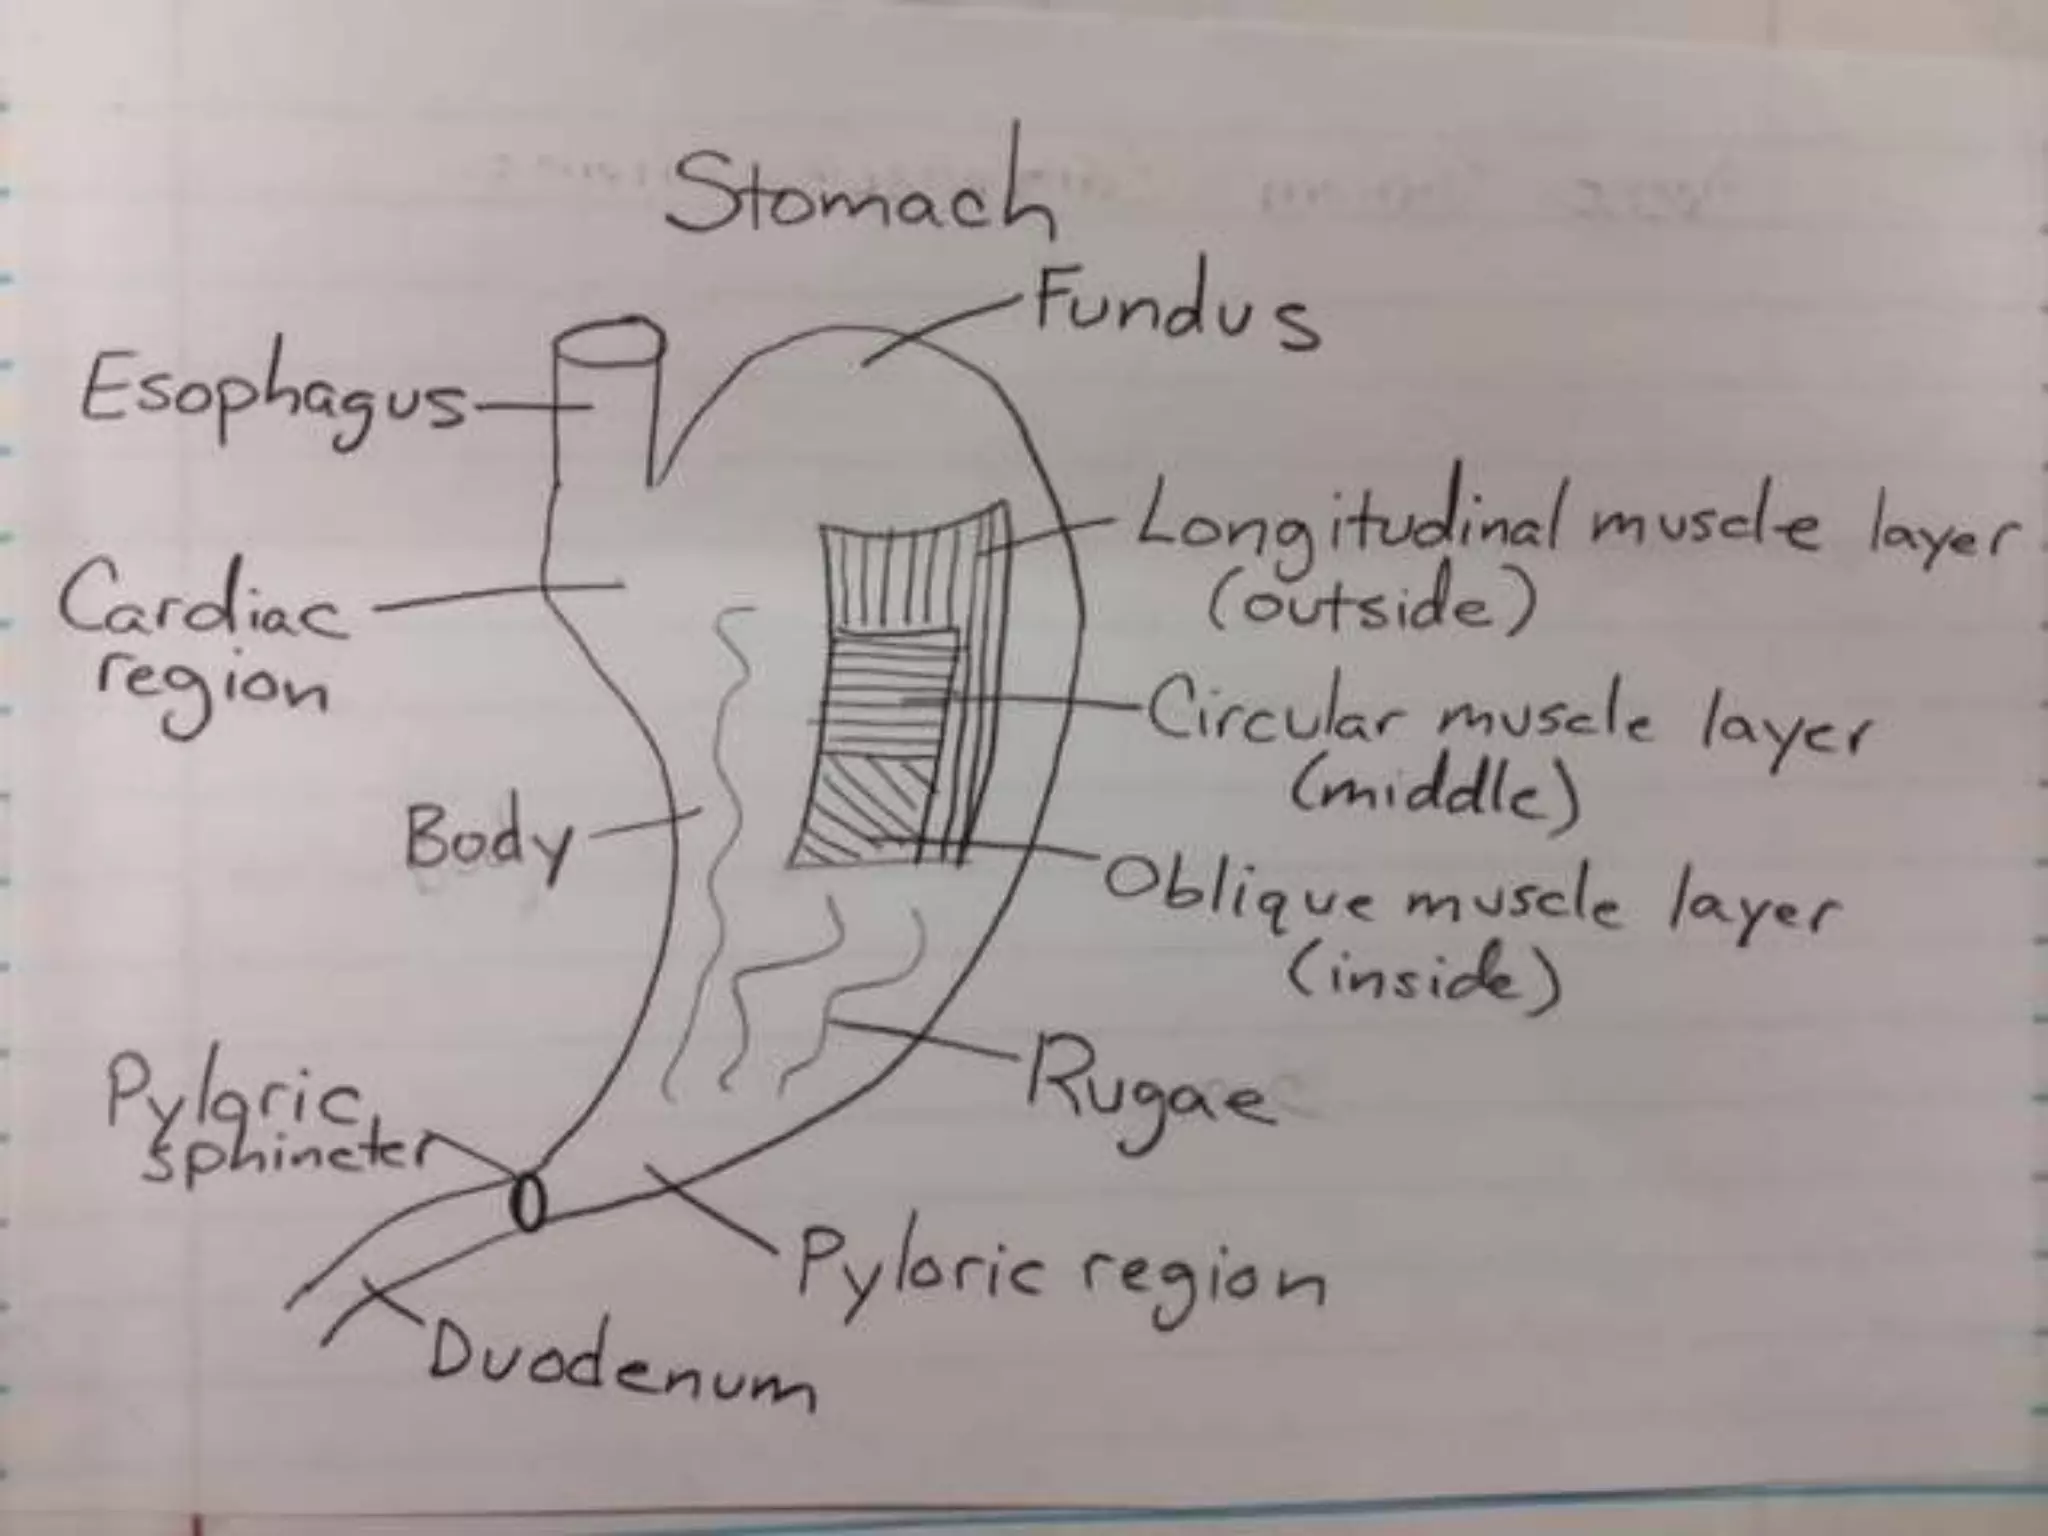 Stomach
Fundus
Esophagus
Longitudinal muscle layer
(outside)
Cardiac
region
Circular muscle layer
(middle)
Body
Oblique muscle layer
(inside)
Rugae
Pyloric
sphincter
Pyloric region
Duodenum